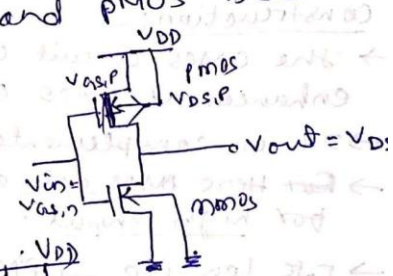 and pMOS
VDD
VGS,P pMOS
VDS,P
Vout = VDS
Vin =
VGS,n nMOS
VDD